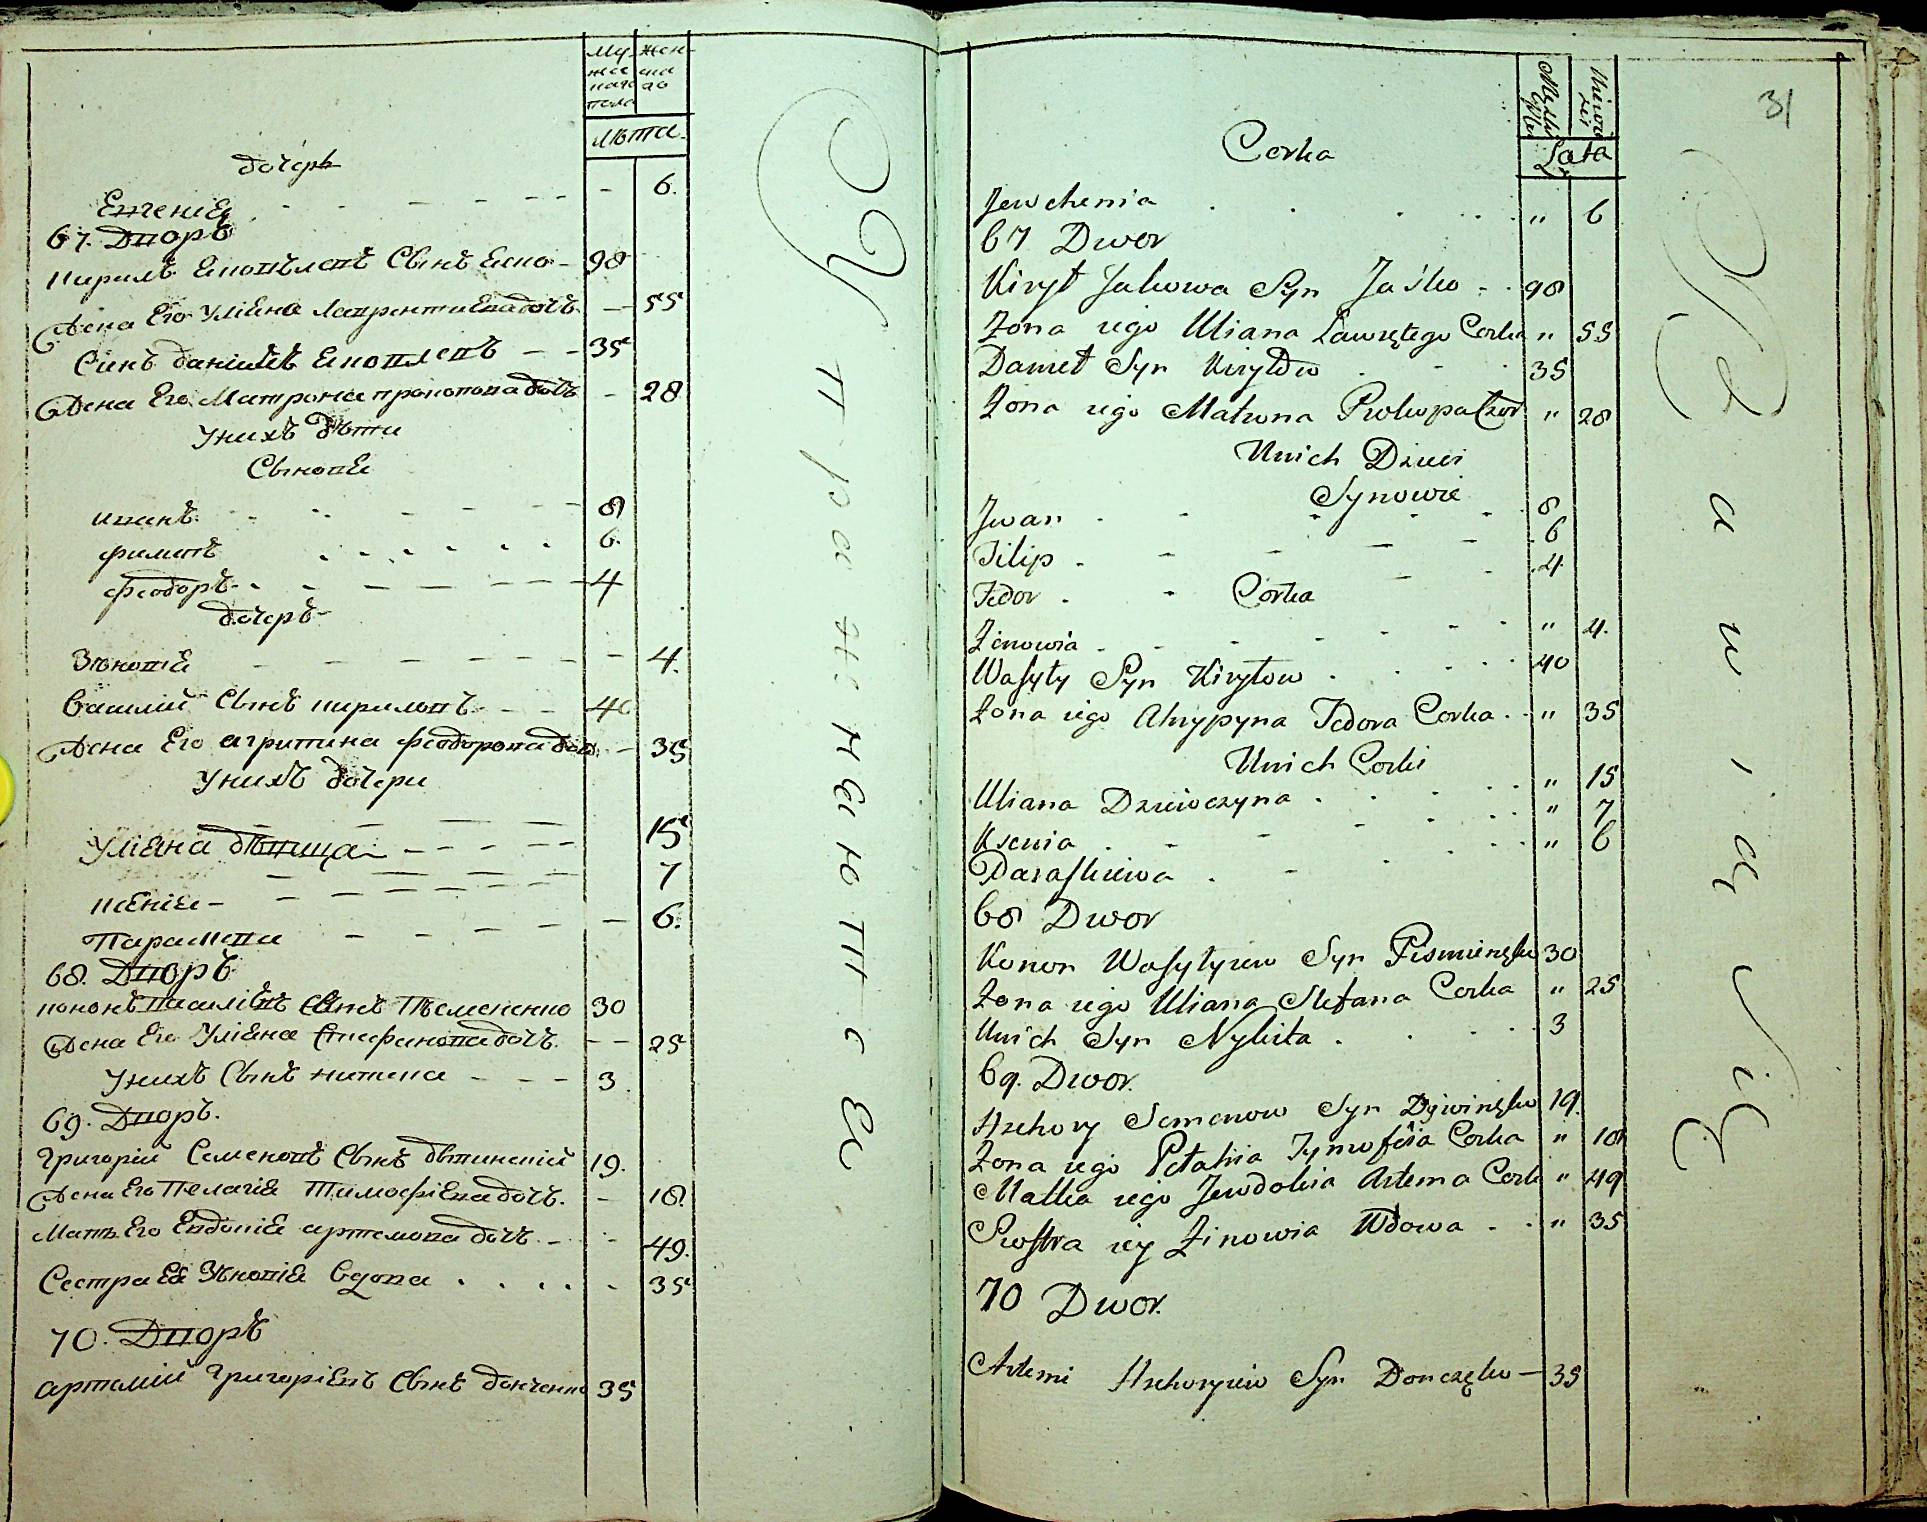 Му
жес
каго
пола
Жен
ска
го
Лѣта
дочерь
Евгения - 6.
67. Дворъ
Кирилъ Яковлевъ Сынъ Яско 98
Жена Его Улiяна Лаврентиева дочь 55
Синъ данiилъ 35
Жена Его Матрона прокопова дочь - 28
У нихъ дѣти
Сыновя
иванъ 8
филипъ 6.
феодоръ 4
дочерь
Зѣновiя - 4.
Василий Сынъ кириловъ 40
Жена Его агрипина феодорова доч. - 35
У нихъ дочери
Улiяна дѣвица 15
ксенiя 7
Параскева - 6.
68. Дворъ
кононъ василiевъ Сынъ Писмененко 30
Жена Его Улiяна Стефанова дочъ. 25
У нихъ Сынъ никита 3
69. Дворъ.
Григорiй Семеновъ Сынъ двинскiй 19.
Жена Его Пелагiя Тимофiева дочъ. - 18.
Мать Его Евдокiя артемова дочъ - 49.
Сестра Ея Зѣновiя Вдова - 35
70. Дворъ
артемiй Григорiевъ Сынъ донченко 35
У п ра ж н я ю т с я
31
Lata
Corka
Jewchenia " 6
67 Dwor
Kirył Jakowa Syn Jaśko 98
Żona iego Uliana Ławrętego Corka " 55
Daniel Syn Kiryłów 35
Żona iego Matrona Prokopa Cor " 28
U nich Dzieci
Synowie
Jwan 8
Filip 6
Fedor 4
Corka
Zenowia " 4.
Wasyły Syn Kiryłow 40
Żona iego Ahrypyna Fedora Corka " 35
U nich Corki
Uliana Dziewczyna " 15
Ksenia " 7
Paraskiewa " 6
68 Dwor
Konon Wasyłyiew Syn Pismienęko 30
Żona iego Uliana Stefana Corka " 25
U nich Syn Nykita 3
69. Dwor.
Hrehory Semenow Syn Dźwinęko 19.
Żona iego Pelahia Tymofeia Corka " 18
Matka iego Jewdokia Artema Cork " 49
Siostra iey Zinowia Wdowa " 35
70 Dwor.
Artemi Hrehoryiew Syn Donczęko 35